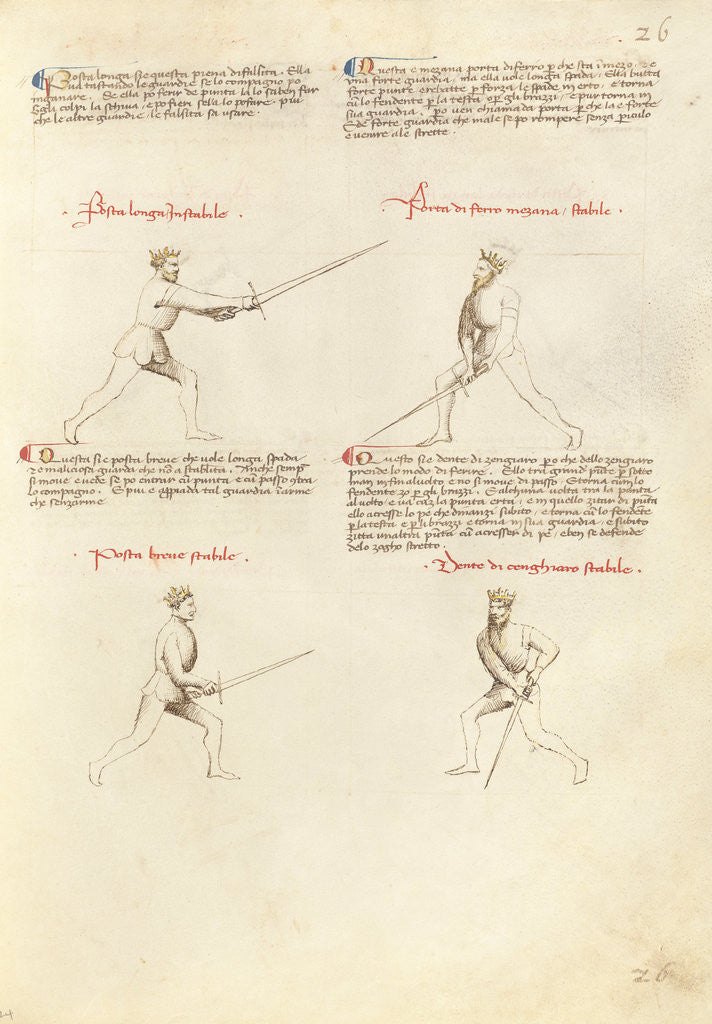 26
Posta longa si e questa piena di falsita. Ella
va tastando le guardie se lo compagno po
inganare. Se ella po ferir de punta la lo sa ben far
E gli colpi la schiva, e po fieri se la lo po fare. piu
che le altre guardie le falsita sa usare.
. Posta longa instabile .
Questa e mezana porta di ferro p che sta i mezo, e e
una forte guardia, ma ella vole longa spada. Ella butta
forte punte e rebatte p forza le spade in erto, e torna
cu lo fendente p la testa o p gli brazzi, e pur torna in
sua guardia. po ven chiamada porta p che la e forte
E de forte guardia che male se po rompere senza piculo
e venire ale strette .
. Porta di ferro mezana, stabile .
Questa si e posta breve che vole longa spada
e e maliciosa guarda che no a stabilita. Anche semp
si move e vede se po entrar cu punta e cu passo contra
lo compagno. E piu e apriada tal guardia i arme
che senz arme
. Posta breve stabile .
Questo si e dente di zengiaro po che dello zengiaro
prende lo modo di ferire. Ello tra grand punte p sotto
man in fin al volto e no si move di passo, e torna cum lo
fendente zo p gli brazzi. E alchuna volta tra la punta
al volto e va cu la punta erta, e in quello zitar di puta
ello acresse lo pe ch e dinanzi subito, e torna cu lo fendente
p la testa e p li brazzi e torna in sua guardia, e subito
zitta un altra punta cu acresser di pe, e ben se defende
delo zogho stretto .
. Dente di cenghiaro stabile .
26